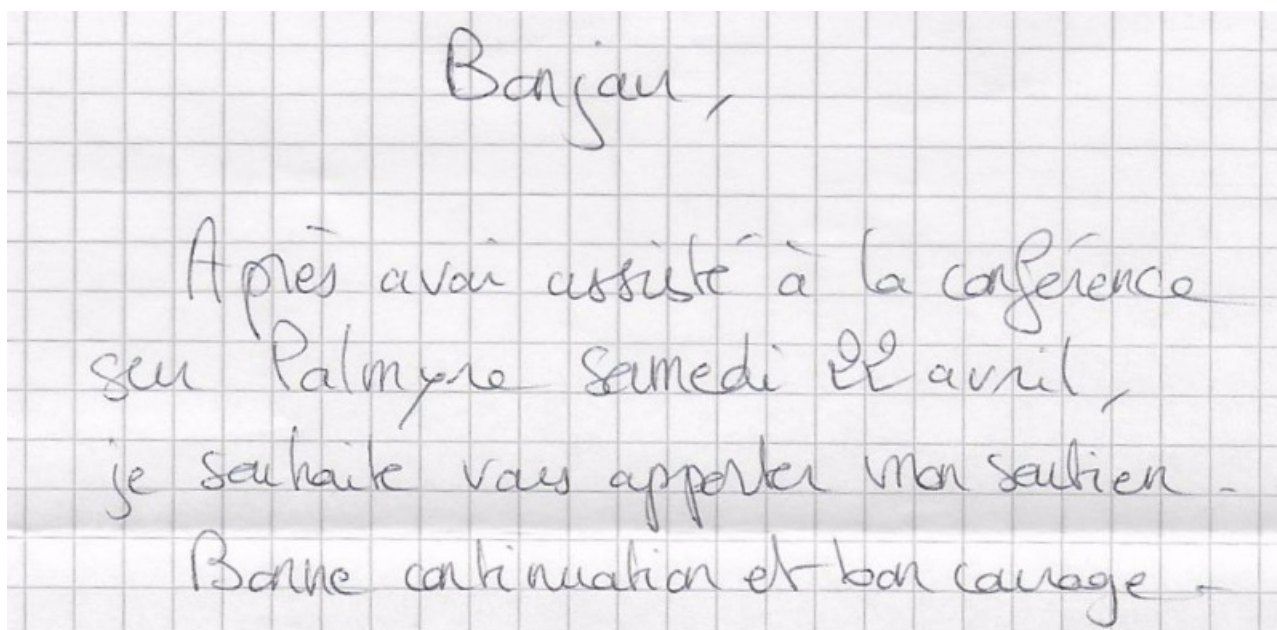 Bonjour,
Après avoir assisté à la conférence
sur Palmyre samedi 22 avril,
je souhaite vous apporter mon soutien.
Bonne continuation et bon courage.